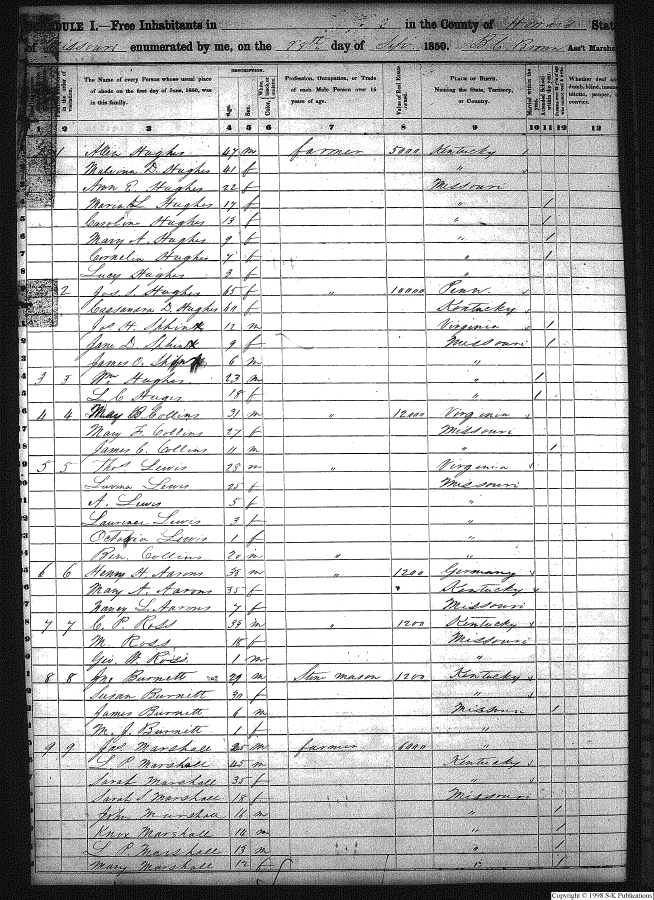 SCHEDULE I.—Free Inhabitants in in the County of Howard State
of Missouri enumerated by me, on the day of Sep 1850. Ass't Marshal
DESCRIPTION.
The Name of every Person whose usual place of abode on the first day of June, 1850, was in this family.
Age.
Sex.
Profession, Occupation, or Trade of each Male Person over 15 years of age.
Value of Real Estate owned.
PLACE OF BIRTH. Naming the State, Territory, or Country.
Married within the year.
Attended School within the year.
Whether deaf and dumb, blind, insane, idiotic, pauper, or convict.
1 2 3 4 5 6 7 8 9 10 11 12 13
1 Allen Hughes 47 m farmer 5000 Kentucky
Malvina D. Hughes 41 f "
Ann E. Hughes 22 f Missouri
Maria L Hughes 17 f " 1
Caroline Hughes 13 f " 1
Mary A. Hughes 9 f " 1
Cornelia Hughes 7 f " 1
Lucy Hughes 3 f "
2 Jos S Hughes 65 f " 10000 Penn.
Cassandra D. Hughes 60 f Kentucky
Jos H. 12 m Virginia 1
Jane D 9 f Missouri 1
James O. 6 m "
3 3 Wm Hughes 23 m " 1
L. C Huges 18 f " 1
4 4 May B Collins 31 m " 12000 Virginia
Mary F. Collins 27 f Missouri
James C. Collins 11 m " 1
5 5 Thos Lewis 28 m " Virginia
Luvina Lewis 25 f Missouri
A. Lewis 5 f "
Laurence Lewis 3 f "
Octavia Lewis 1 f "
Ben. Collins 20 m " "
6 6 Henry H. Aarons 35 m " 1200 Germany
Mary A. Aarons 35 f Kentucky
Nancy L. Aarons 7 f Missouri
7 7 C. P. Ross 33 m " 1200 Kentucky
M. Ross 18 f Missouri
Geo. W. Ross. 1 m "
8 8 Jno Burnett 29 m Stone mason 1200 Kentucky
Susan Burnett 30 f "
James Burnett 6 m Missouri 1
M. J. Burnett 1 f "
9 9 Jos Marshall 25 m farmer 6000 "
L P. Marshall 45 m Kentucky
Sarah Marshall 35 f "
Sarah S Marshall 18 f Missouri
John Marshall 16 m " 1
Knox Marshall 14 m " 1
L P. Marshall 13 m " 1
Mary Marshall 12 f " 1
Copyright © 1998 S-K Publications